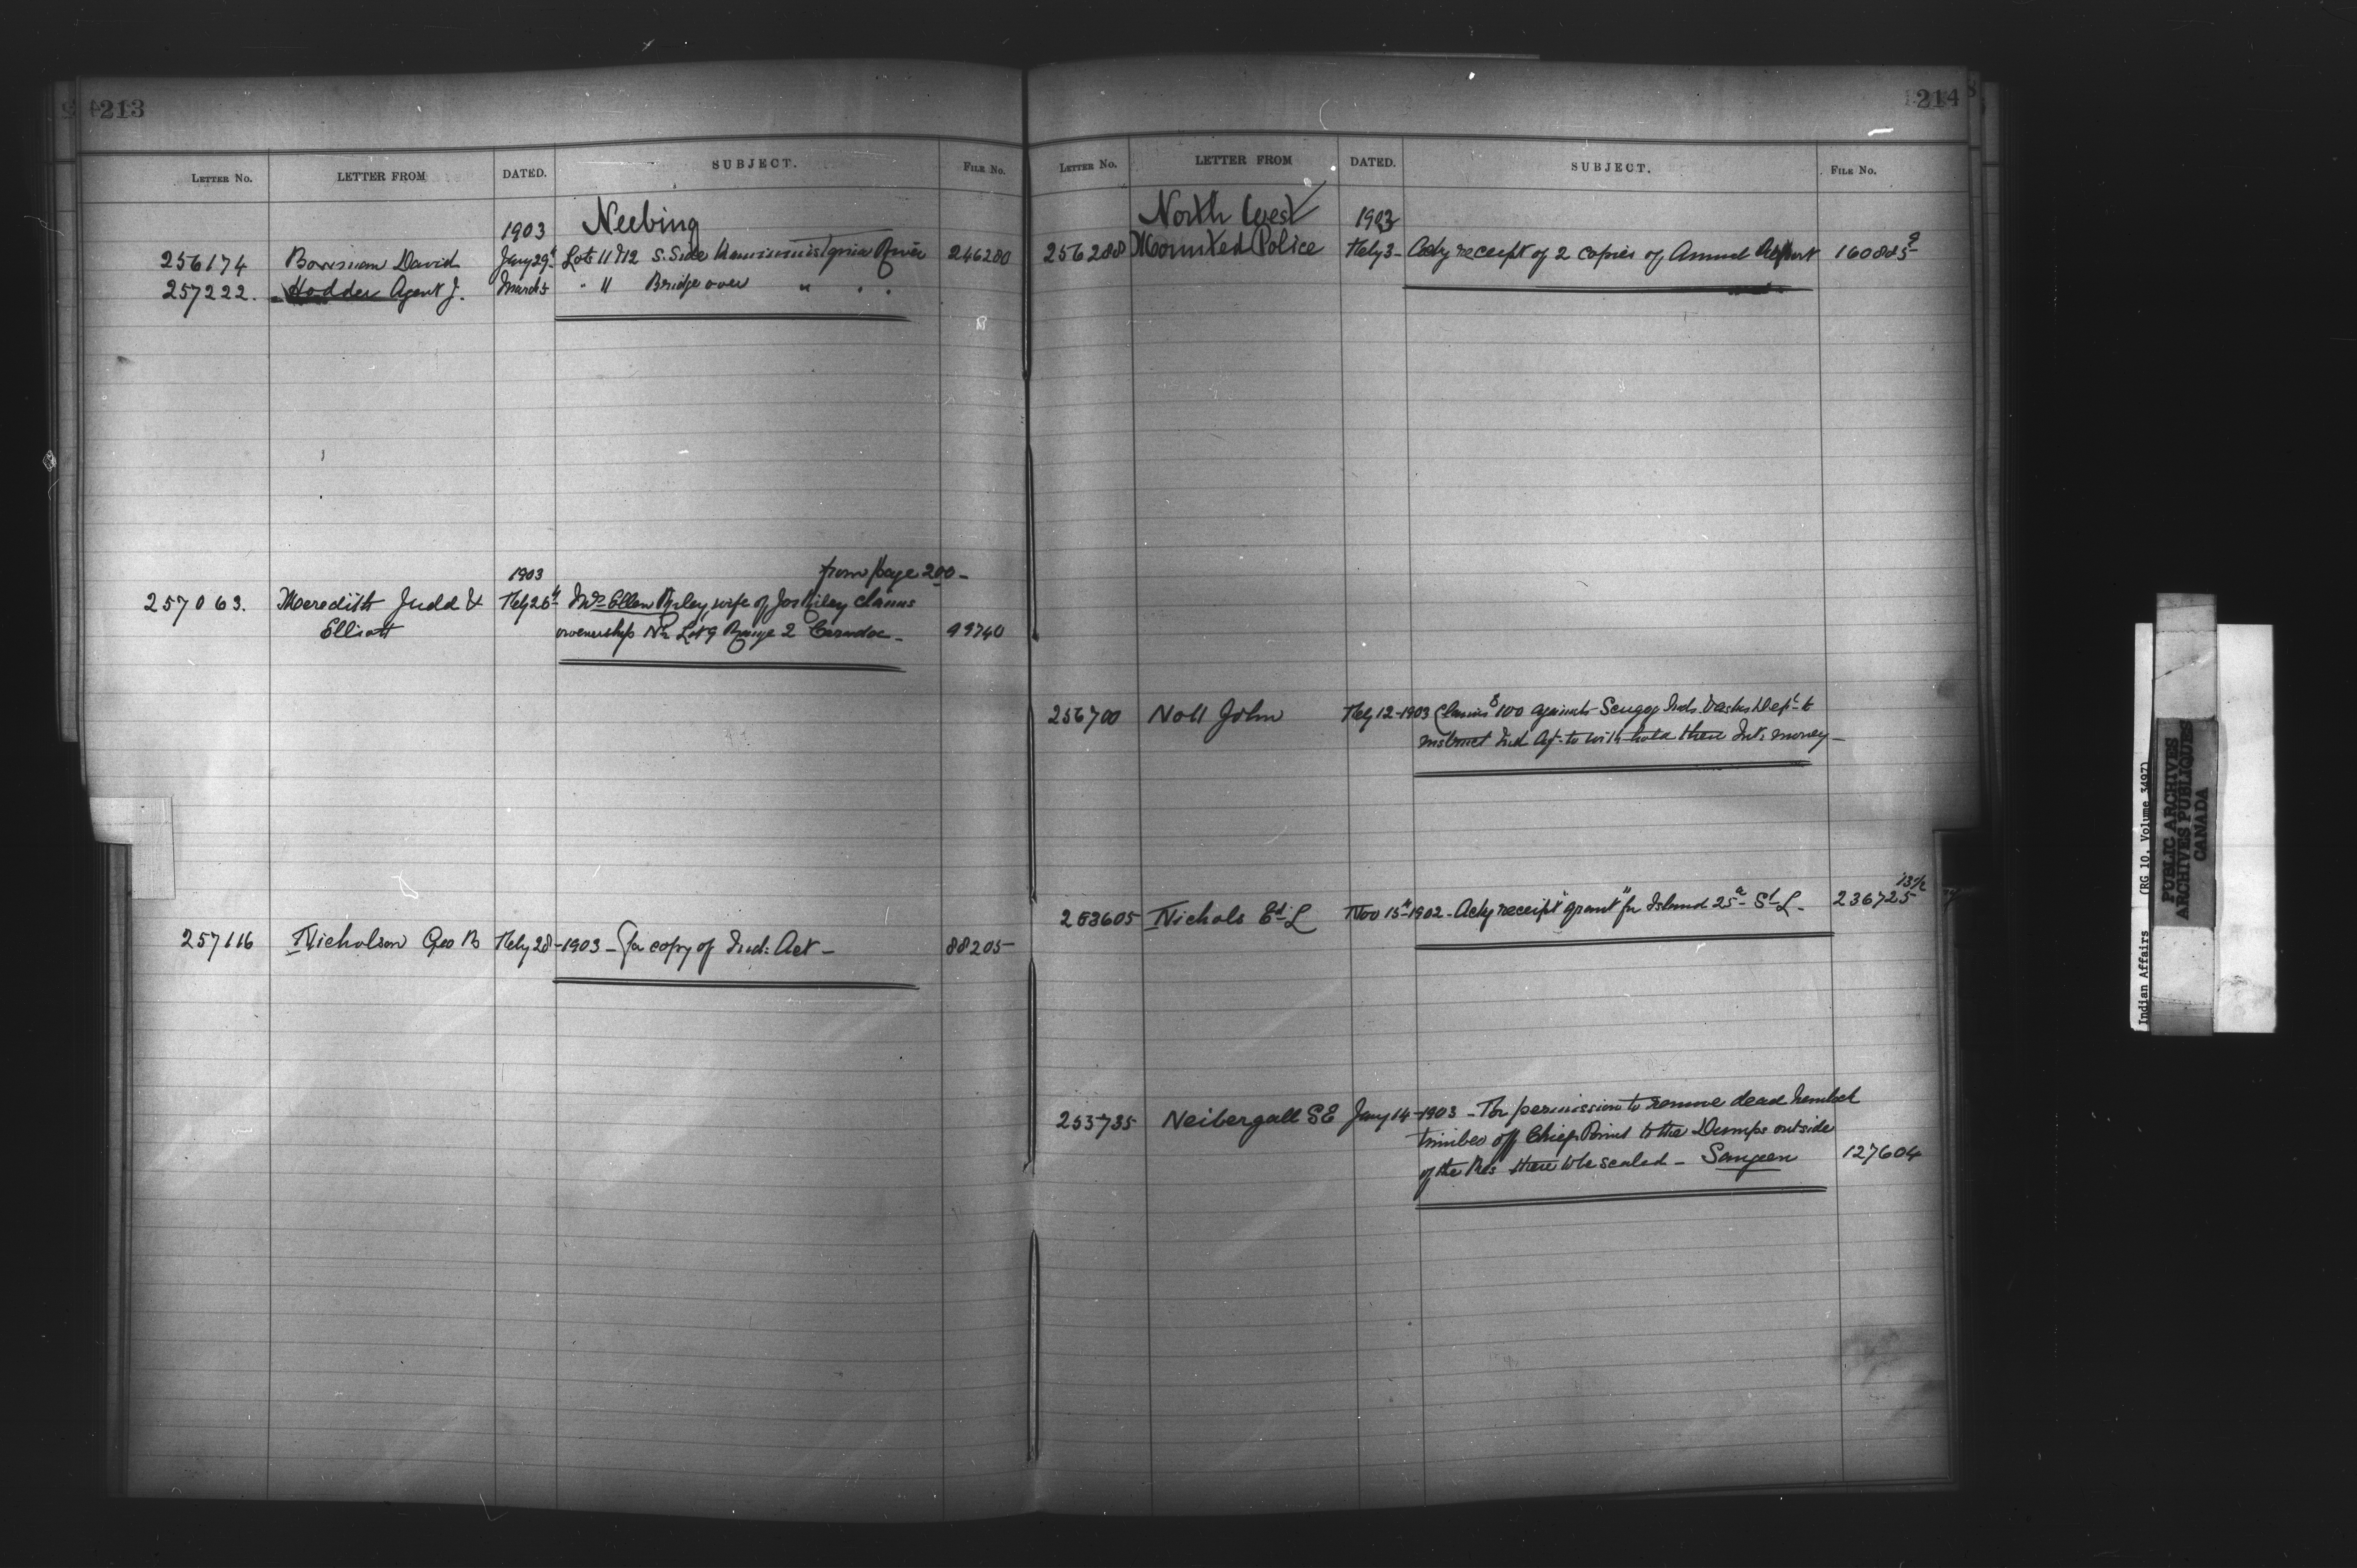 213
LETTER No. LETTER FROM DATED. SUBJECT. FILE No.
1903 Neebing
256174 Bowman David Jany 29th Lots 11 & 12 S. Side River 246280
257222. Hodder Agent J. March 5 " 11 Bridge over " " "
1903 from page 200-
257063. Meredith Judd & Feby 26th Mrs Ellen Riley wife of Jos Riley claims
Elliott ownership N½ Lot 9 Range 2 Caradoc - 99740
257116 Nicholson Geo B Feby 28-1903 - for copy of Ind: Act - 88205-
214
LETTER No. LETTER FROM DATED. SUBJECT. FILE No.
North West 1903
256288 Mounted Police Feby 3- Ackg receipt of 2 copies of Annual Report 160885-
256700 Noll John Feby 12-1903 Claims $100 against Scugog Inds. & asks Dept to
instruct Ind Agt. to with hold their Int. money -
253605 Nichols Ed L Nov 15th-1902- Ackg receipt grant for Island 25a St L- 236725
255735 Neibergall S E Jany 14-1903 - For permission to remove dead hemlock
timber off Chiefs Point to the Dumps outside
of the Res there to be scaled - Saugeen 127604
Indian Affairs (RG 10, Volume 3497)
PUBLIC ARCHIVES
ARCHIVES PUBLIQUES
CANADA